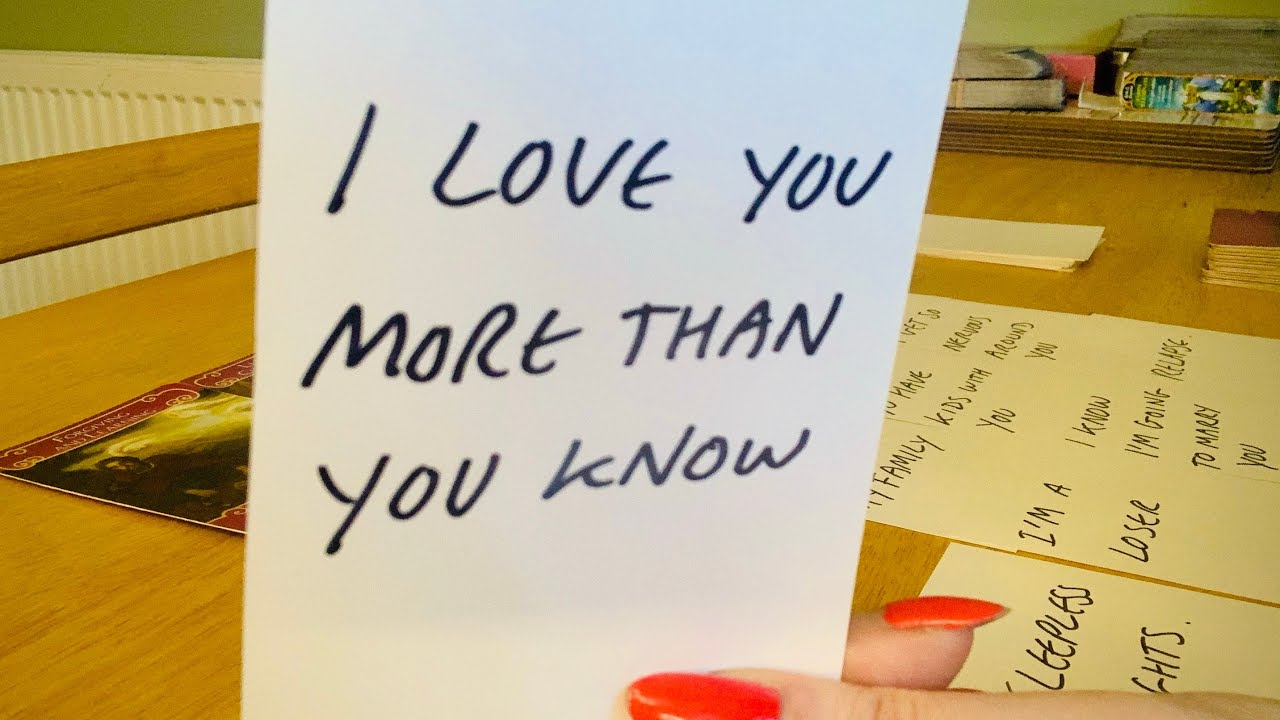 I LOVE YOU
MORE THAN
YOU KNOW
FORGIVING
NERVOUS
AROUND
YOU
HAVE
KIDS WITH
YOU
FAMILY
I KNOW
I'M GOING
TO MARRY
YOU
RELAPSE.
I'M A
LOSER
SLEEPLESS